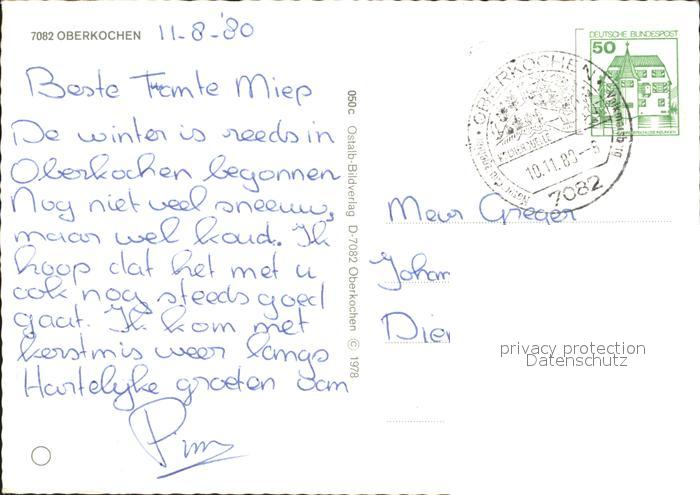 7082 OBERKOCHEN 11-8-'80
Beste Tante Miep
De winter is reeds in
Oberkochen begonnen
Nog niet veel sneeuw,
maar wel koud. Ik
hoop dat het met u
ook nog steeds goed
gaat. Ik kom met
kerstmis weer langs
Hartelijke groeten
050c Ostalb-Bildverlag D-7082 Oberkochen © 1978
DEUTSCHE BUNDESPOST
50
OBERKOCHEN
10.11.80-8
7082
Mevr
Johan
Dier
privacy protection
Datenschutz